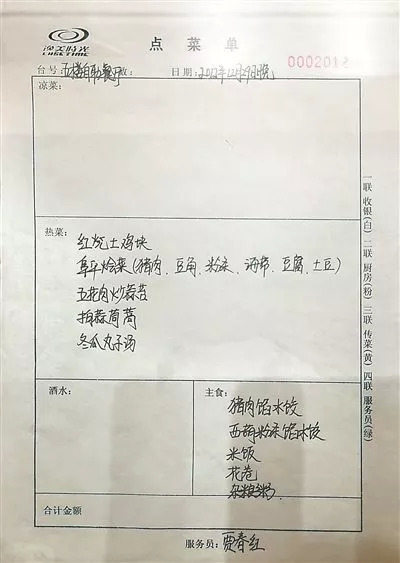 渔天时光
LUSETIME
点菜单
0002012
台号:五楼自助餐厅 数: 日期:2012年12月29日晚
凉菜:
热菜:
红烧土鸡块
阜平烩菜(猪肉、豆角、粉条、海带、豆腐、土豆)
五花肉炒蒜苔
拍蒜茼蒿
冬瓜丸子汤
酒水:
主食:
猪肉馅水饺
西葫粉条馅水饺
米饭
花卷
杂粮粥
合计金额
服务员:贾春红
一联 收银(白) 二联 厨房(粉) 三联 传菜(黄) 四联 服务员(绿)